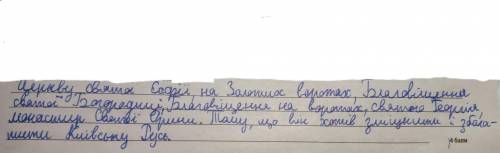 Церкву святої Софії на Золотих воротах, Благовіщення
святої Богородиці, Благовіщення на воротах, святого Георгія
монастир Святої Ірини. Тому, що він хотів зміцнити і збага-
тити Київську Русь.
4 бали